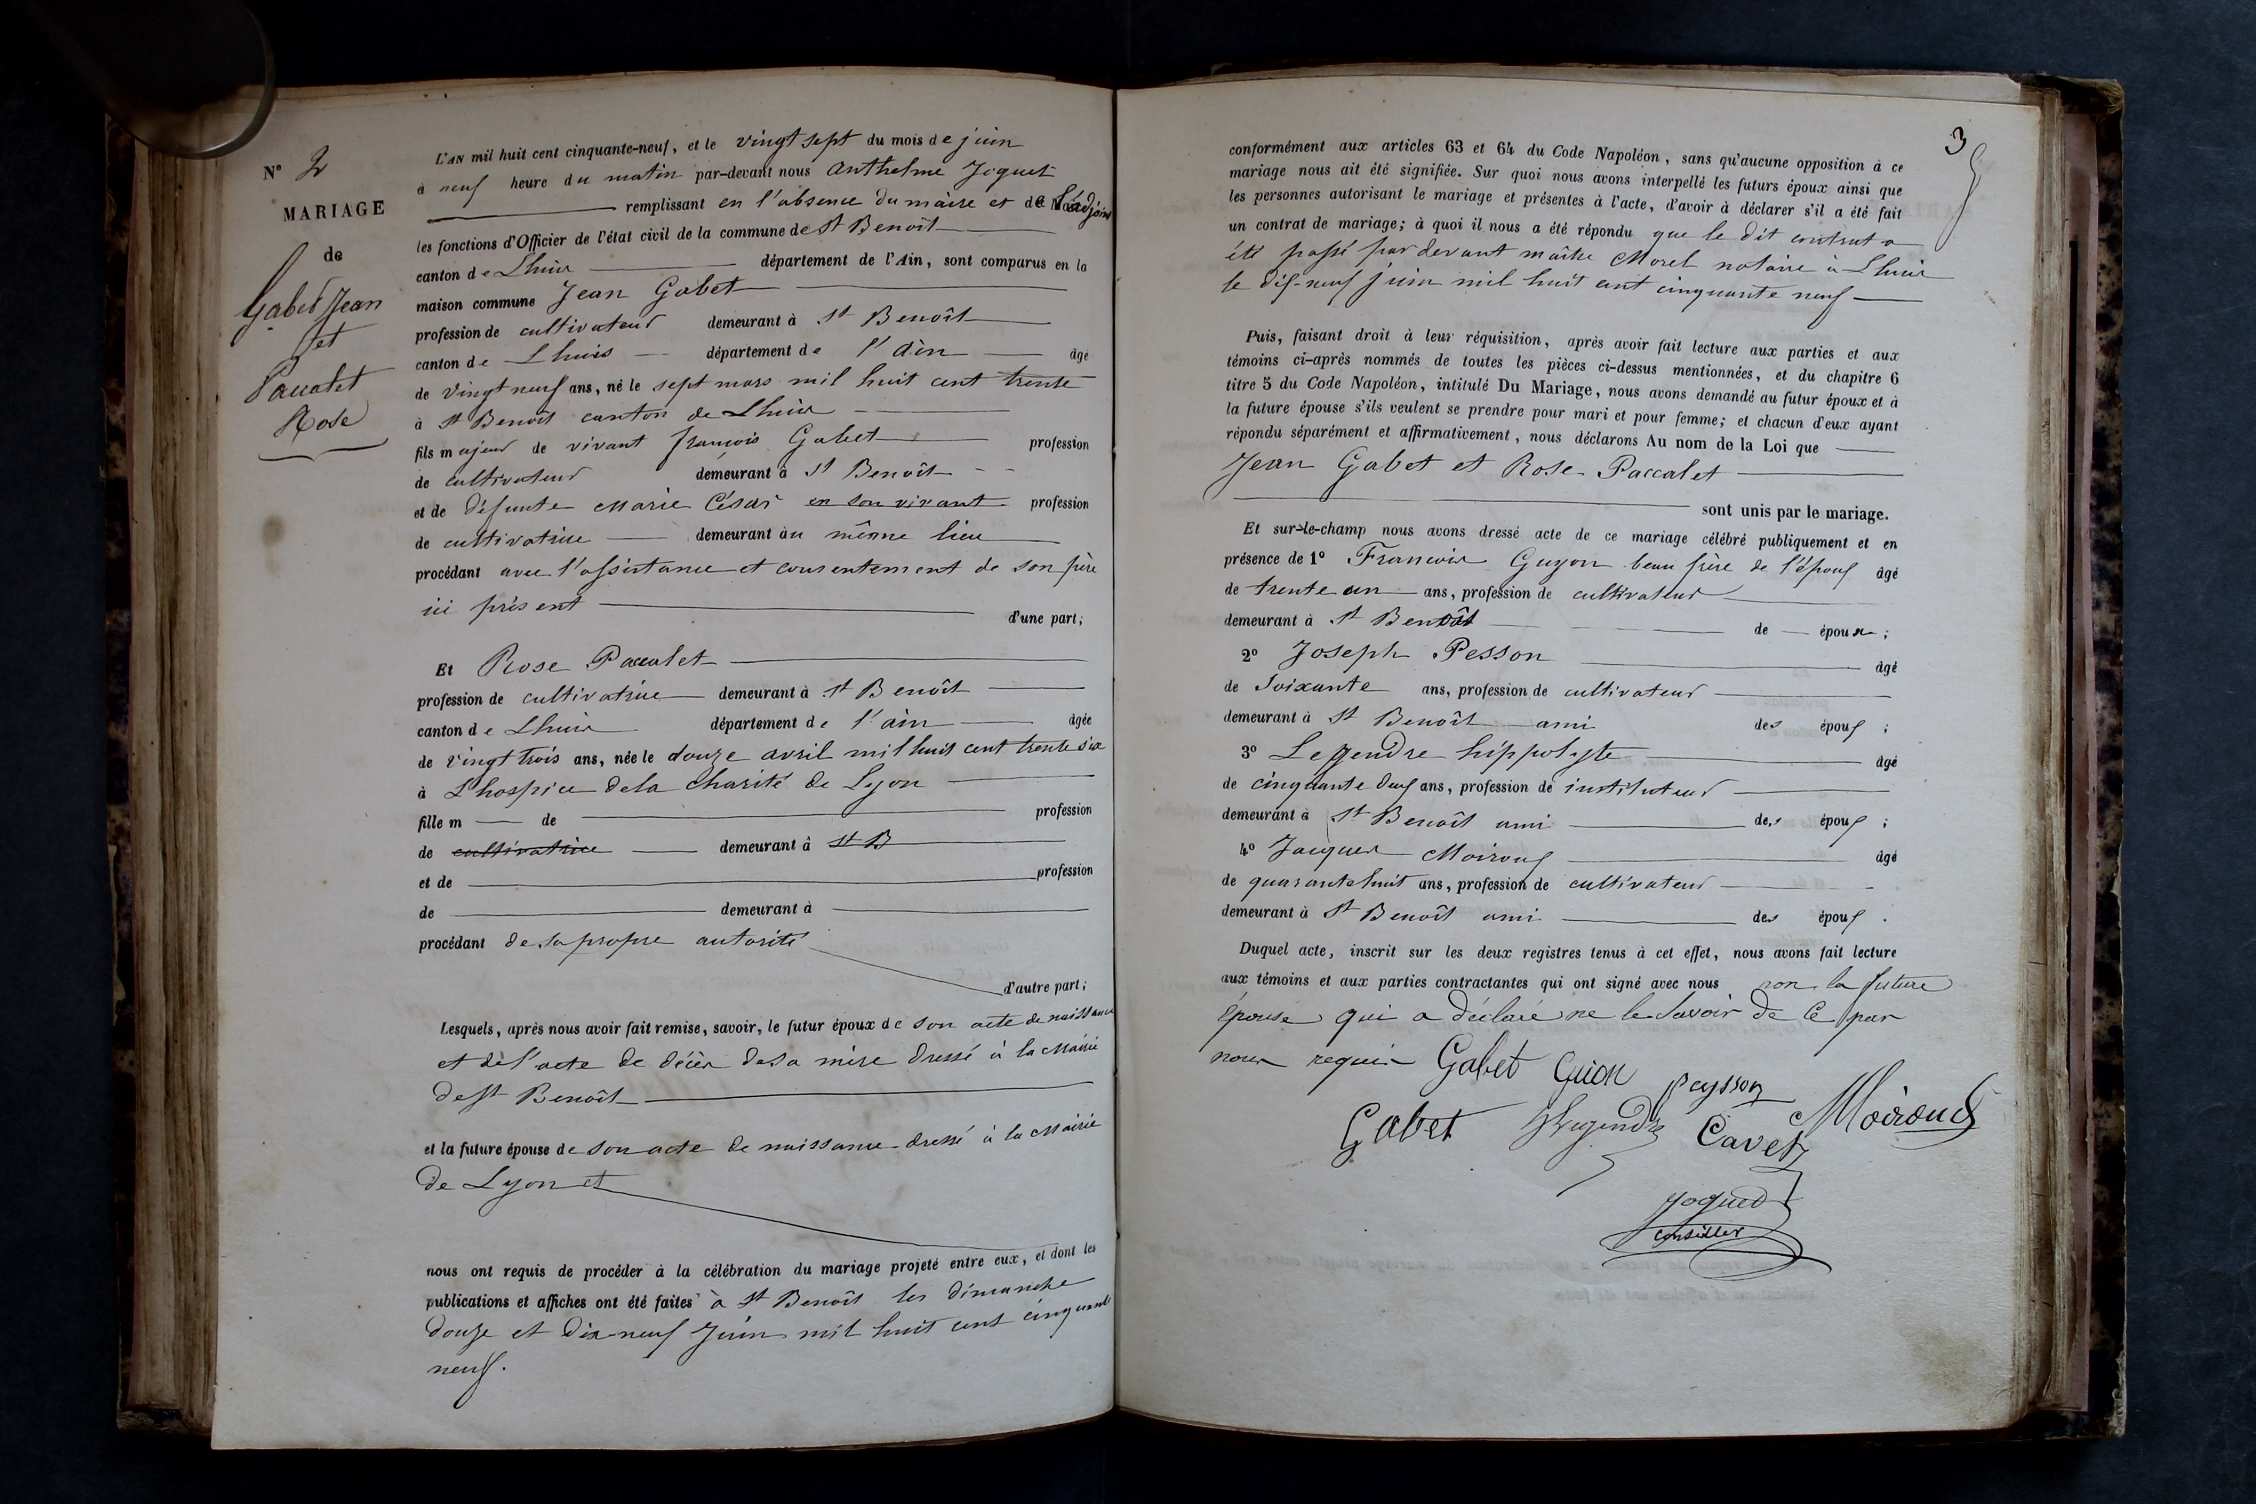 N° 2
MARIAGE
de
Gabet Jean
et
Paccalet
Rose
L'AN mil huit cent cinquante-neuf, et le vingt sept du mois de juin
à neuf heure du matin par-devant nous Anthelme Joguet
remplissant en l'absence du maire et de l'adjoint
les fonctions d'Officier de l'état civil de la commune de St Benoît
canton de Lhuis département de l'Ain, sont comparus en la
maison commune Jean Gabet
profession de cultivateur demeurant à St Benoît
canton de Lhuis département de l'Ain âgé
de vingt neuf ans, né le sept mars mil huit cent trente
à St Benoît canton de Lhuis
fils majeur de vivant françois Gabet profession
de cultivateur demeurant à St Benoît
et de défunte Marie César en son vivant profession
de cultivatrice demeurant au même lieu
procédant avec l'assistance et consentement de son père
ici présent d'une part;
Et Rose Paccalet
profession de cultivatrice demeurant à St Benoît
canton de Lhuis département de l'ain âgée
de vingt trois ans, née le douze avril mil huit cent trente six
à L'hospice de la Charité de Lyon
fille m de profession
de cultivatrice demeurant à St B
et de profession
de demeurant à
procédant de sa propre autorité
d'autre part;
Lesquels, après nous avoir fait remise, savoir, le futur époux de son acte de naissance
et de l'acte de décès de sa mère dressé à la Mairie
de St Benoît
et la future épouse de son acte de naissance dressé à la Mairie
de Lyon et
nous ont requis de procéder à la célébration du mariage projeté entre eux, et dont les
publications et affiches ont été faites à St Benoît les dimanche
douze et dix-neuf Juin mil huit cent cinquante
neuf.
3
conformément aux articles 63 et 64 du Code Napoléon, sans qu'aucune opposition à ce
mariage nous ait été signifiée. Sur quoi nous avons interpellé les futurs époux ainsi que
les personnes autorisant le mariage et présentes à l'acte, d'avoir à déclarer s'il a été fait
un contrat de mariage; à quoi il nous a été répondu que le dit contrat a
été passé par devant maître Morel notaire à Lhuis
le dix-neuf juin mil huit cent cinquante neuf
Puis, faisant droit à leur réquisition, après avoir fait lecture aux parties et aux
témoins ci-après nommés de toutes les pièces ci-dessus mentionnées, et du chapitre 6
titre 5 du Code Napoléon, intitulé Du Mariage, nous avons demandé au futur époux et à
la future épouse s'ils veulent se prendre pour mari et pour femme; et chacun d'eux ayant
répondu séparément et affirmativement, nous déclarons Au nom de la Loi que
Jean Gabet et Rose Paccalet
sont unis par le mariage.
Et sur-le-champ nous avons dressé acte de ce mariage célébré publiquement et en
présence de 1° Francois Guyon beau frère de l'époux âgé
de trente un ans, profession de cultivateur
demeurant à St Benoît de époux;
2° Joseph Pesson âgé
de Soixante ans, profession de cultivateur
demeurant à St Benoît ami des époux;
3° Legendre hippolyte âgé
de cinquante deux ans, profession de instituteur
demeurant à St Benoît ami des époux;
4° Jacques Moiroux âgé
de quarante huit ans, profession de cultivateur
demeurant à St Benoît ami des époux.
Duquel acte, inscrit sur les deux registres tenus à cet effet, nous avons fait lecture
aux témoins et aux parties contractantes qui ont signé avec nous non la future
épouse qui a déclaré ne le Savoir de Ce par
nous requis Gabet Guion peysson
Gabet HLegendre Cavet Moiroud
Joguet
Conseiller